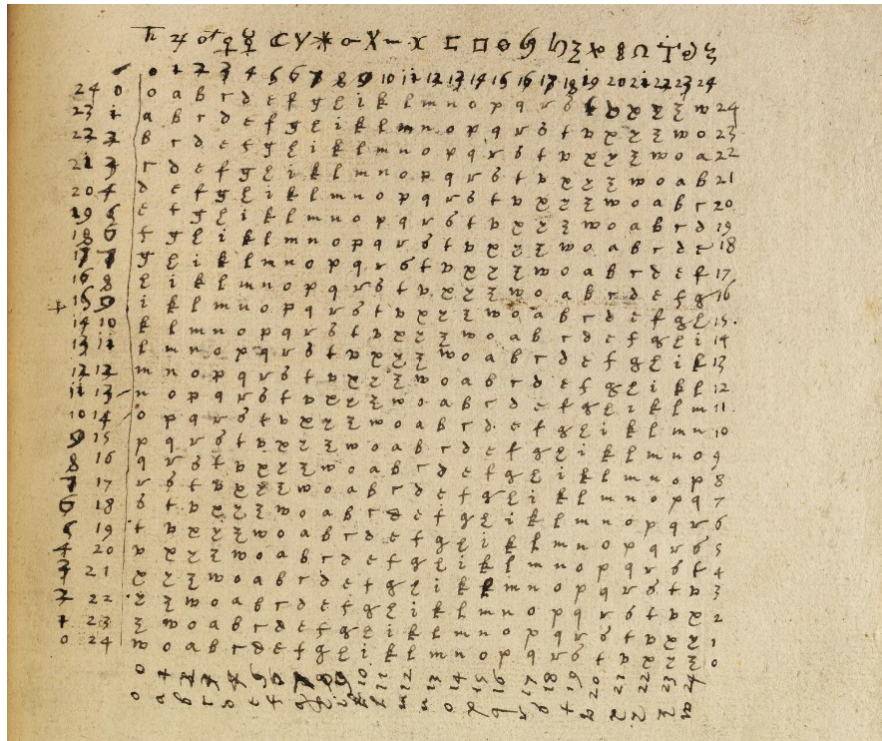 ♄ ♃ ♂ ♀ ☿ ☾ Y * □ ♌
0 1 2 3 4 5 6 7 8 9 10 11 12 13 14 15 16 17 18 19 20 21 22 23 24
24 0 o a b c d e f g h i k l m n o p q r s t v x y z w 24
23 1 a b c d e f g h i k l m n o p q r s t v x y z w o 23
22 2 b c d e f g h i k l m n o p q r s t v x y z w o a 22
21 3 c d e f g h i k l m n o p q r s t v x y z w o a b 21
20 4 d e f g h i k l m n o p q r s t v x y z w o a b c 20
19 5 e f g h i k l m n o p q r s t v x y z w o a b c d 19
18 6 f g h i k l m n o p q r s t v x y z w o a b c d e 18
17 7 g h i k l m n o p q r s t v x y z w o a b c d e f 17
16 8 h i k l m n o p q r s t v x y z w o a b c d e f g 16
+ 15 9 i k l m n o p q r s t v x y z w o a b c d e f g h 15
14 10 k l m n o p q r s t v x y z w o a b c d e f g h i 14
13 11 l m n o p q r s t v x y z w o a b c d e f g h i k 13
12 12 m n o p q r s t v x y z w o a b c d e f g h i k l 12
11 13 n o p q r s t v x y z w o a b c d e f g h i k l m 11
10 14 o p q r s t v x y z w o a b c d e f g h i k l m n 10
9 15 p q r s t v x y z w o a b c d e f g h i k l m n o 9
8 16 q r s t v x y z w o a b c d e f g h i k l m n o p 8
7 17 r s t v x y z w o a b c d e f g h i k l m n o p q 7
6 18 s t v x y z w o a b c d e f g h i k l m n o p q r 6
5 19 t v x y z w o a b c d e f g h i k l m n o p q r s 5
4 20 v x y z w o a b c d e f g h i k l m n o p q r s t 4
3 21 x y z w o a b c d e f g h i k l m n o p q r s t v 3
2 22 y z w o a b c d e f g h i k l m n o p q r s t v x 2
1 23 z w o a b c d e f g h i k l m n o p q r s t v x y 1
0 24 w o a b c d e f g h i k l m n o p q r s t v x y z 0
0 1 2 3 4 5 6 7 8 9 10 11 12 13 14 15 16 17 18 19 20 21 22 23 24
o a b c d e f g h i k l m n o p q r s t v x y z w